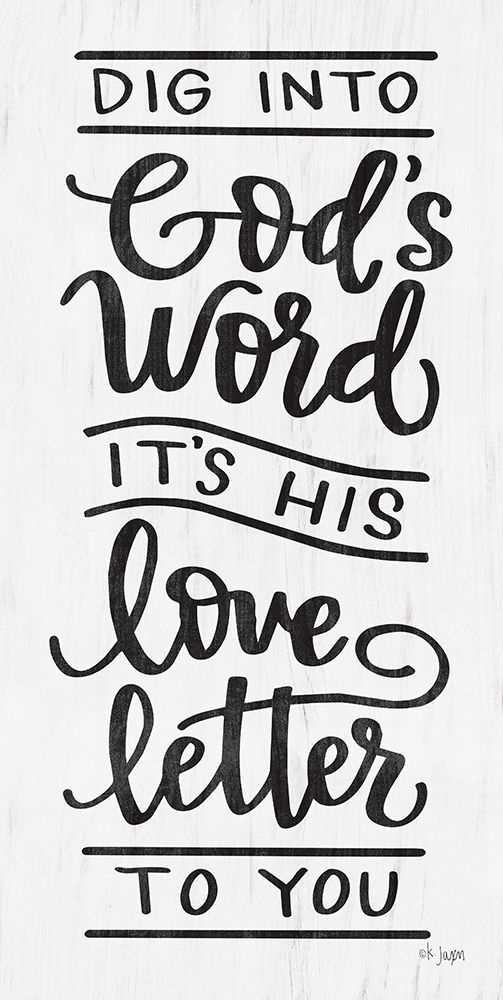 DIG INTO
God's
Word
IT'S HIS
love
letter
TO YOU
©K. Jaxn